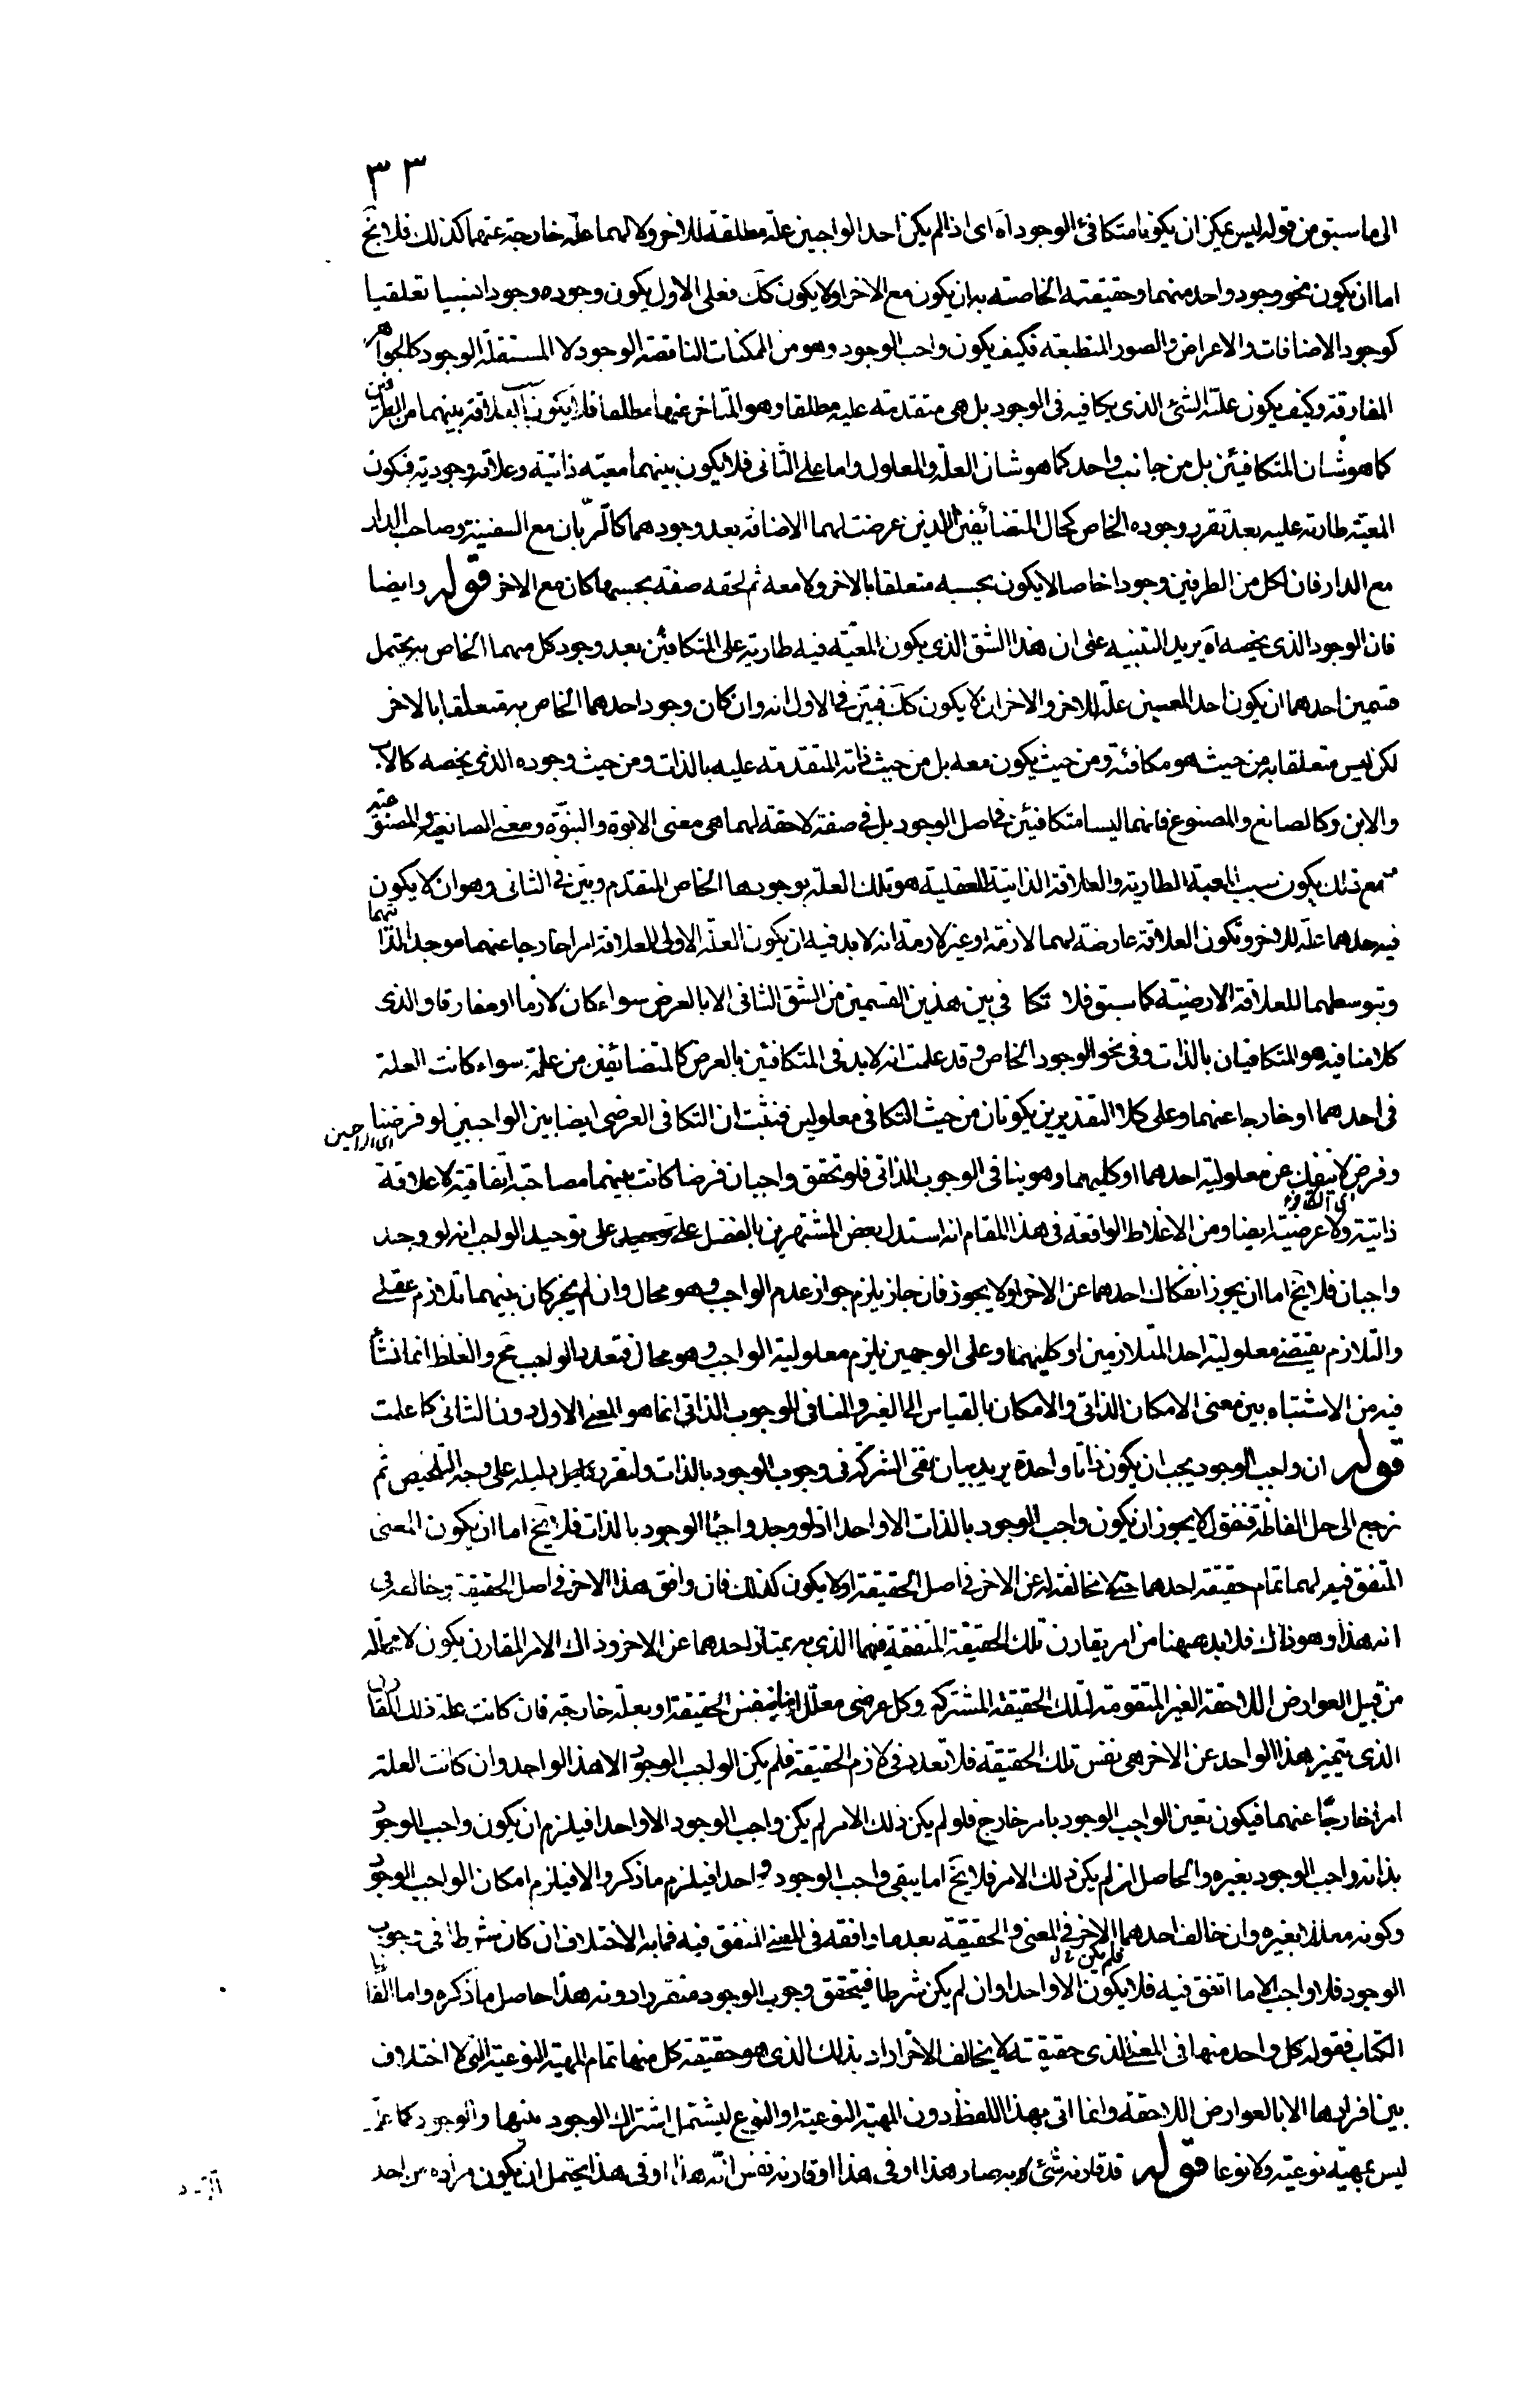 ٣٣
الى ما سبق من قوله ليس يمكن ان يكونا متكافئ الوجود اه اى اذا لم يكن احد الواجبين علة مطلقة للاخر ولا لهما علة خارجة عنهما كذلك فلا يخ
اما ان يكون نحو وجود واحد منهما وحقيقته الخاصة به ان يكون مع الاخر او لا يكون كك فعلى الاول يكون وجوده وجودا نسبيا تعلقيا
كوجود الاضافات والاعراض والصور المنطبعة فكيف يكون واجب الوجود وهو من الممكنات الناقصة الوجود لا المستقلة الوجود كالجواهر
المفارقة وكيف يكون علته الشئ الذى يكافيه فى الوجود بل هى متقدمة عليه مطلقا وهو المتاخر عنها مطلقا فلا يكون سبب العلاقة بينهما من الطرفين
كما هو شان المتكافئين بل من جانب واحد كما هو شان العلة والمعلول واما على الثانى فلا يكون بينهما معية ذاتية وعلاقة وجودية فيكون
المعية طارية عليه بعد تقرر وجوده الخاص كحال المتضائفين اللذين عرضت لهما الاضافة بعد وجودهما كالربان مع السفينة وصاحب الدار
مع الدار فان لكل من الطرفين وجودا خاصا لا يكون بحسبه متعلقا بالاخر ولا معه ثم لحقه صفة بحسبها كان مع الاخر قوله وايضا
فان الوجود الذى يخصه اه يريد التنبيه على ان هذا الشق الذى يكون المعية فيه طارية على المتكافئين بعد وجود كل منهما الخاص به يحتمل
قسمين احدهما ان يكون احد المعين علة للاخر والاخر ان لا يكون كك فبين فى الاول انه وان كان وجود احدهما الخاص به متعلقا بالاخر
لكن ليس متعلقا به من حيث هو مكافئه ومن حيث يكون معه بل من حيث ذاته المتقدمة عليه بالذات ومن حيث وجوده الذى يخصه كالاب
والابن وكالصانع والمصنوع فانهما ليسا متكافئين فى اصل الوجود بل فى صفة لاحقة لهما هى معنى الابوة والبنوة ومعنى الصانعية والمصنوعية
مع ذلك يكون سبب المعية الطارية والعلاقة الذاتية العقلية هو تلك العلة بوجودها الخاص المتقدم وبين فى الثانى وهو ان لا يكون
فيه احدهما علة للاخر وتكون العلاقة عارضة لهما لازمة او غير لازمة انه لا بد فيه ان يكون العلة الاولى للعلاقة امرا خارجا عنهما موجد الذاتيهما
وبتوسطهما للعلاقة العرضية كما سبق فلا تكافى بين هذين القسمين من الشق الثانى الا بالعرض سواء كان لازما او مفارقا والذى
كلامنا فيه هو المتكافيان بالذات وفى نحو الوجود الخاص وقد علمت انه لا بد فى المتكافئين بالعرض كالمتضائفين من علة سواء كانت العلة
فى احدهما او خارجا عنهما وعلى كلا التقديرين يكونان من حيث التكافى معلولين فثبت ان التكافى العرضى ايضا بين الواجبين لو فرضنا
وفرض لا ينفك عن معلولية احدهما او كليهما وهو ينافى الوجوب الذاتى فلو تحقق واجبان فرضا كانت بينهما مصاحبة اتفاقية لا علاقة
ذاتية ولا عرضية ايضا ومن الاغلاط الواقعة فى هذا المقام انه استدل بعض المشتهرين بالفضل على توحيد الواجب انه لو وجد
واجبان فلا يخ اما ان يجوز انفكاك احدهما عن الاخر او لا يجوز فان جاز يلزم جواز عدم الواجب وهو محال وان لم يجز كان بينهما تلازم عقلى
والتلازم يقتضى معلولية احد المتلازمين او كليهما وعلى الوجهين يلزم معلولية الواجب وهو محال فتعدد الواجب مح والغلط انما نشأ
فيه من الاشتباه بين معنى الامكان الذاتى والامكان بالقياس الى الغير والمنافى للوجوب الذاتى انما هو المعنى الاول دون الثانى كما علمت
قوله ان واجب الوجود يجب ان يكون ذاتا واحدة يريد بيان نفى الشركة فى وجوب الوجود بالذات ولنقرر حاصل دليله على وجه التلخيص ثم
نرجع الى حل الفاظه فنقول لا يجوز ان يكون واجب الوجود بالذات الا واحدا اذ لو وجد واجبا الوجود بالذات فلا يخ اما ان يكون المعنى
المتفق فيه لهما تمام حقيقة احدهما حتى لا مخالفة له عن الاخر فى اصل الحقيقة او لا يكون كذلك فان وافق هذا الاخر فى اصل الحقيقة وخالفه فى
انه هذا وهو ذاك فلا بد ههنا من امر يقارن تلك الحقيقة المتفقة فيهما الذى به يمتاز احدهما عن الاخر وذاك الامر المقارن يكون لا محالة
من قبيل العوارض اللاحقة الغير المتقومة لتلك الحقيقة المشتركة وكل عرضى معلل اما بنفس الحقيقة او بعلة خارجة فان كانت علة ذلك المقارن
الذى يتميز به هذا الواحد عن الاخر هى نفس تلك الحقيقة فلا تعدد فى لازم الحقيقة فلم يكن الواجب الوجود الا هذا الواحد وان كانت العلة
امرا خارجا عنهما فيكون تعين الواجب الوجود بامر خارج فلو لم يكن ذلك الامر لم يكن واجب الوجود الا واحدا فيلزم ان يكون واجب الوجود
بذاته واجب الوجود بغيره والحاصل انه لم يكن ذلك الامر فلا يخ اما يبقى واجب الوجود واحدا فيلزم ما ذكر والا فيلزم امكان الواجب الوجود
وكونه معللا بغيره وان خالف احدهما الاخر فى المعنى والحقيقة بعد ما وافقه فى المعنى المتفق فيه فما به الاختلاف ان كان شرطا فى وجوب
الوجود فلا واجب الا ما اتفق فيه فلا يكون الا واحدا وان لم يكن شرطا فيتحقق وجوب الوجود متقررا دونه هذا حاصل ما ذكره واما الفاظ
الكتاب فقوله كل واحد منها فى المعنى الذى حقيقته لا يخالف الاخر اراد بذلك الذى هو حقيقة كل منها تمام المهية النوعية التى لا اختلاف
بين افرادها الا بالعوارض اللاحقة وانما اتى بهذا اللفظ دون المهية النوعية او النوع ليشتمل اشتراك الوجود بينها والوجود كما مر
ليس بمهية نوعية ولا نوعا قوله قد قارنه شئ به صار هذا او فى هذا او قارنه نفس انه هذا او فى هذا يحتمل ان يكون مراده من احد